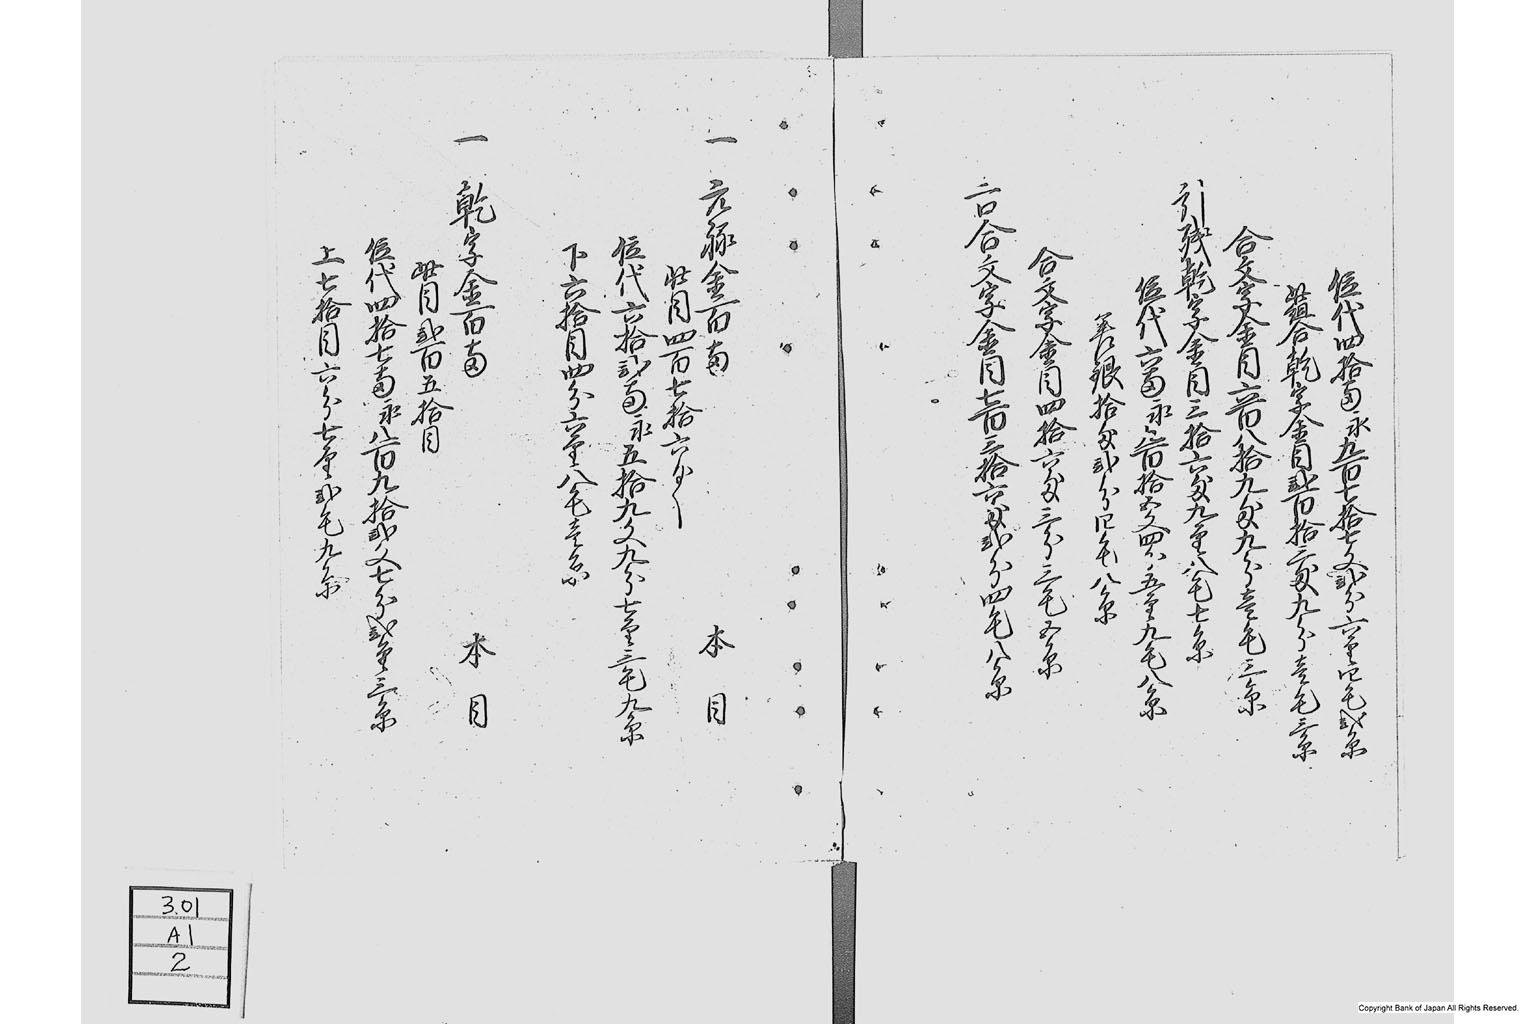 位代四拾両永九百七拾七文弐分六厘四毛弐糸
此鎰合乾字金目弐百拾三匁九分壱毛三糸
合文字金目六百八拾九匁九分壱毛三糸
引残乾字金目三拾六匁九厘八毛七糸
位代六両永百拾五文四分五厘九毛八糸
差銀拾匁弐分四毛八糸
合文字金目四拾六匁三分三毛五糸
二口合文字金目七百三拾六匁弐分四毛八糸
一 元禄金百両 本目
此目四百七拾六匁
位代六拾弐両永五拾九文九分七厘三毛九糸
下六拾目四分六厘八毛壱糸
一 乾字金百両 本目
此目弐百五拾目
位代四拾七両永八百九拾弐文七分弐厘三糸
上七拾目六分七厘弐毛九糸
3.01
A1
2
Copyright Bank of Japan All Rights Reserved.